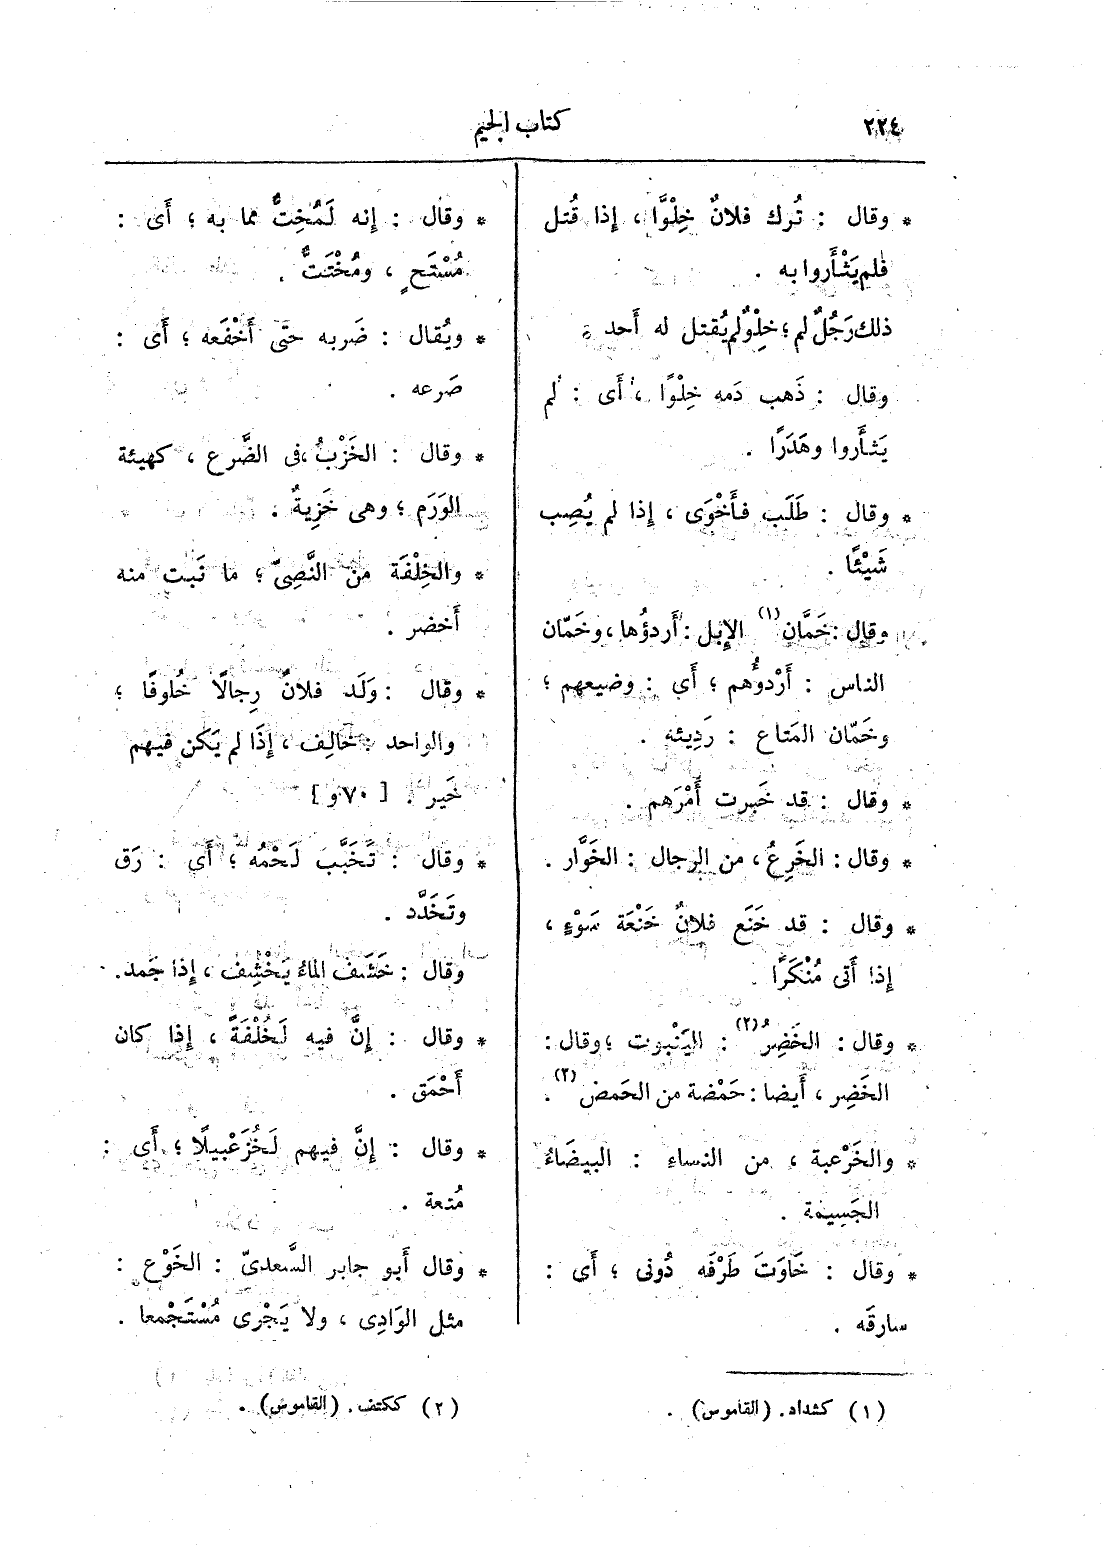 ٢٢٤
كتاب الجيم
* وقال : تُرك فلانٌ خِلْوًّا ، إذا قُتل
فلم يَثْأَروا به .
ذلك رَجُلٌ لم ؛ خِلْوٌ لم يُقتل له أَحد
وقال : ذَهب دَمه خِلْوًا ، أَى : لم
يَثأَروا وهَدَرًا .
* وقال : طَلَب فأَخْوَى ، إذا لم يُصِب
شَيْئًا .
وقال : خَمَّان (١) الإِبل : أَردؤُها ، وخَمّان
الناس : أَرْدوُّهم ؛ أَي : وضيعهم ؛
وخَمّان المَتاع : رَدِيئه .
* وقال : قد خَبرت أَمْرَهم .
* وقال : الخَرِعُ ، من الرجال : الخَوَّار .
* وقال : قد خَنَع فلانٌ خَنْعَة سَوْءٍ ،
إذا أَتى مُنْكَرًا .
* وقال : الخَضِرُ (٢) : اليَنْبوت ؛ وقال :
الخَضِر ، أَيضا : حَمْضة من الحَمض (٢) .
* والخَرْعبة ، من النساء : البيضَاءُ
الجَسِيمة .
* وقال : خَاوَتَ طَرْفَه دُونى ؛ أَى :
سارقَه .
* وقال : إنه لَمُخِتٌّ مما به ؛ أَى :
مُسْتَحٍ ، ومُخْتَتٌّ .
* ويُقال : ضَربه حتَّى أَخْفَعه ؛ أَى :
صَرعه .
* وقال : الخَزْبُ ، فى الضَّرع ، كهيئة
الوَرَم ؛ وهى خَزِبةٌ .
* والخِلْفَة من النَّصِىّ ؛ ما نَبت منه
أَخضر .
* وقال : وَلَد فلانٌ رِجالًا خُلوفًا ؛
والواحد : خالِف ، إذَا لم يَكن فيهم
خَير . [ ٧٠ و ]
* وقال : تَخَبَّب لَحْمُه ؛ أَي : رَق
وتَخَدَّد .
وقال : خَشَف الماءُ يَخْشِف ، إذَا جَمد .
* وقال : إنَّ فيه لَخُلْفَةً ، إذا كان
أَحْمَق .
* وقال : إنَّ فيهم لَخُزَعْبيلًا ؛ أَى :
مُتعة .
* وقال أَبو جابر السَّعدىّ : الخَوْع :
مثل الوَادِى ، ولا يَجْرى مُسْتَجْمعا .
(١) كشداد. (القاموس) .
(٢) ككتف. (القاموس) .